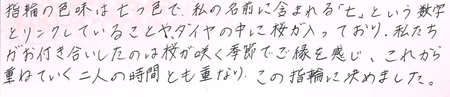 指輪の色味は七つ色で、私の名前に含まれる「七」という数字
とリンクしていることや、ダイヤの中に桜が入っており、私たち
がお付き合いしたのは桜が咲く季節でご縁を感じ、これから
重ねていく二人の時間とも重なり、この指輪に決めました。